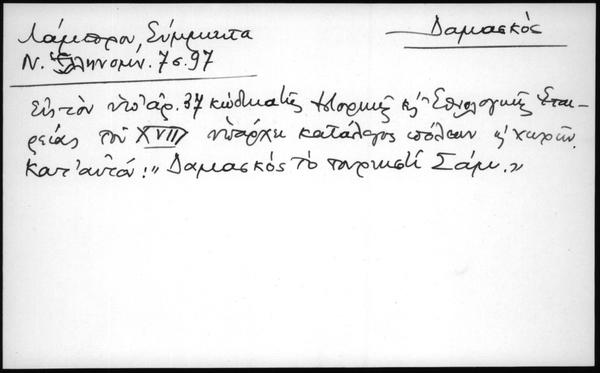 Λάμπρου, Σύμμικτα
Δαμασκός
Ν. Ἑλληνομν. 7 σ. 97
Εἰς τὸν ὑπ' ἀρ. 37 κώδικα τῆς Ἱστορικῆς κ' Ἐθνολογικῆς Ἑται-
ρείας τοῦ XVII ὑπάρχει κατάλογος πόλεων κ' χωρῶν.
Κατ' αὐτόν: " Δαμασκὸς τὸ τουρκιστὶ Σάμ."